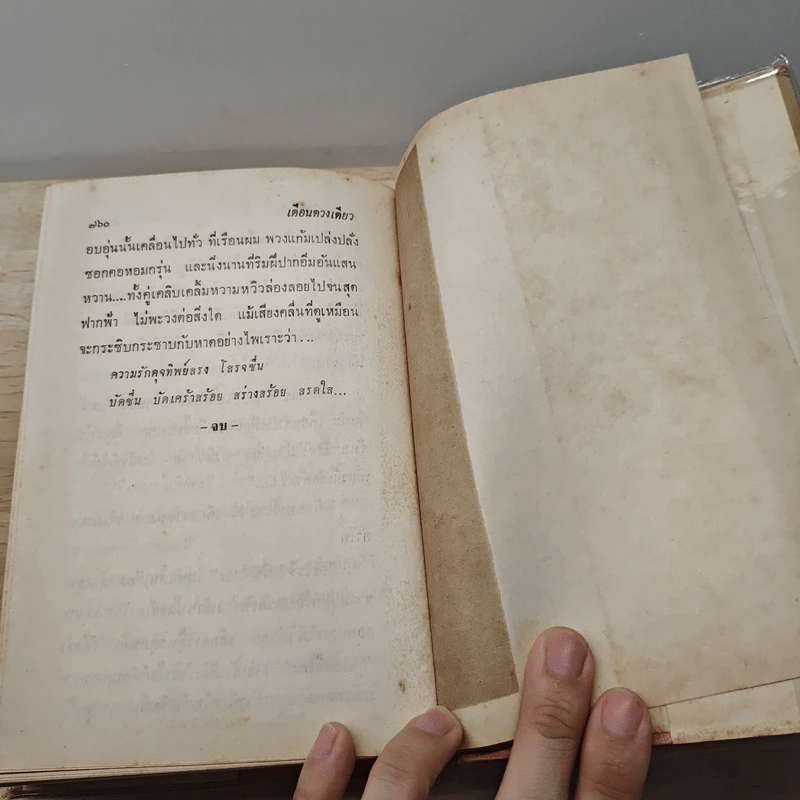 ๗๖๐
เดือนดวงเดียว
อบอุ่นนั้นเคลื่อนไปทั่ว ที่เรือนผม พวงแก้มเปล่งปลั่ง
ซอกคอหอมกรุ่น และนิ่งนานที่ริมฝีปากอิ่มอันแสน
หวาน....ทั้งคู่เคลิบเคลิ้มหวามหวิวล่องลอยไปจนสุด
ฟากฟ้า ไม่พะวงต่อสิ่งใด แม้เสียงคลื่นที่ดูเหมือน
จะกระซิบกระซาบกับหาดอย่างไพเราะว่า....
ความรักดุจทิพย์สรง โสรจชื่น
บัดชื่น บัดเศร้าสร้อย สร่างสร้อย สรดใส...
– จบ –